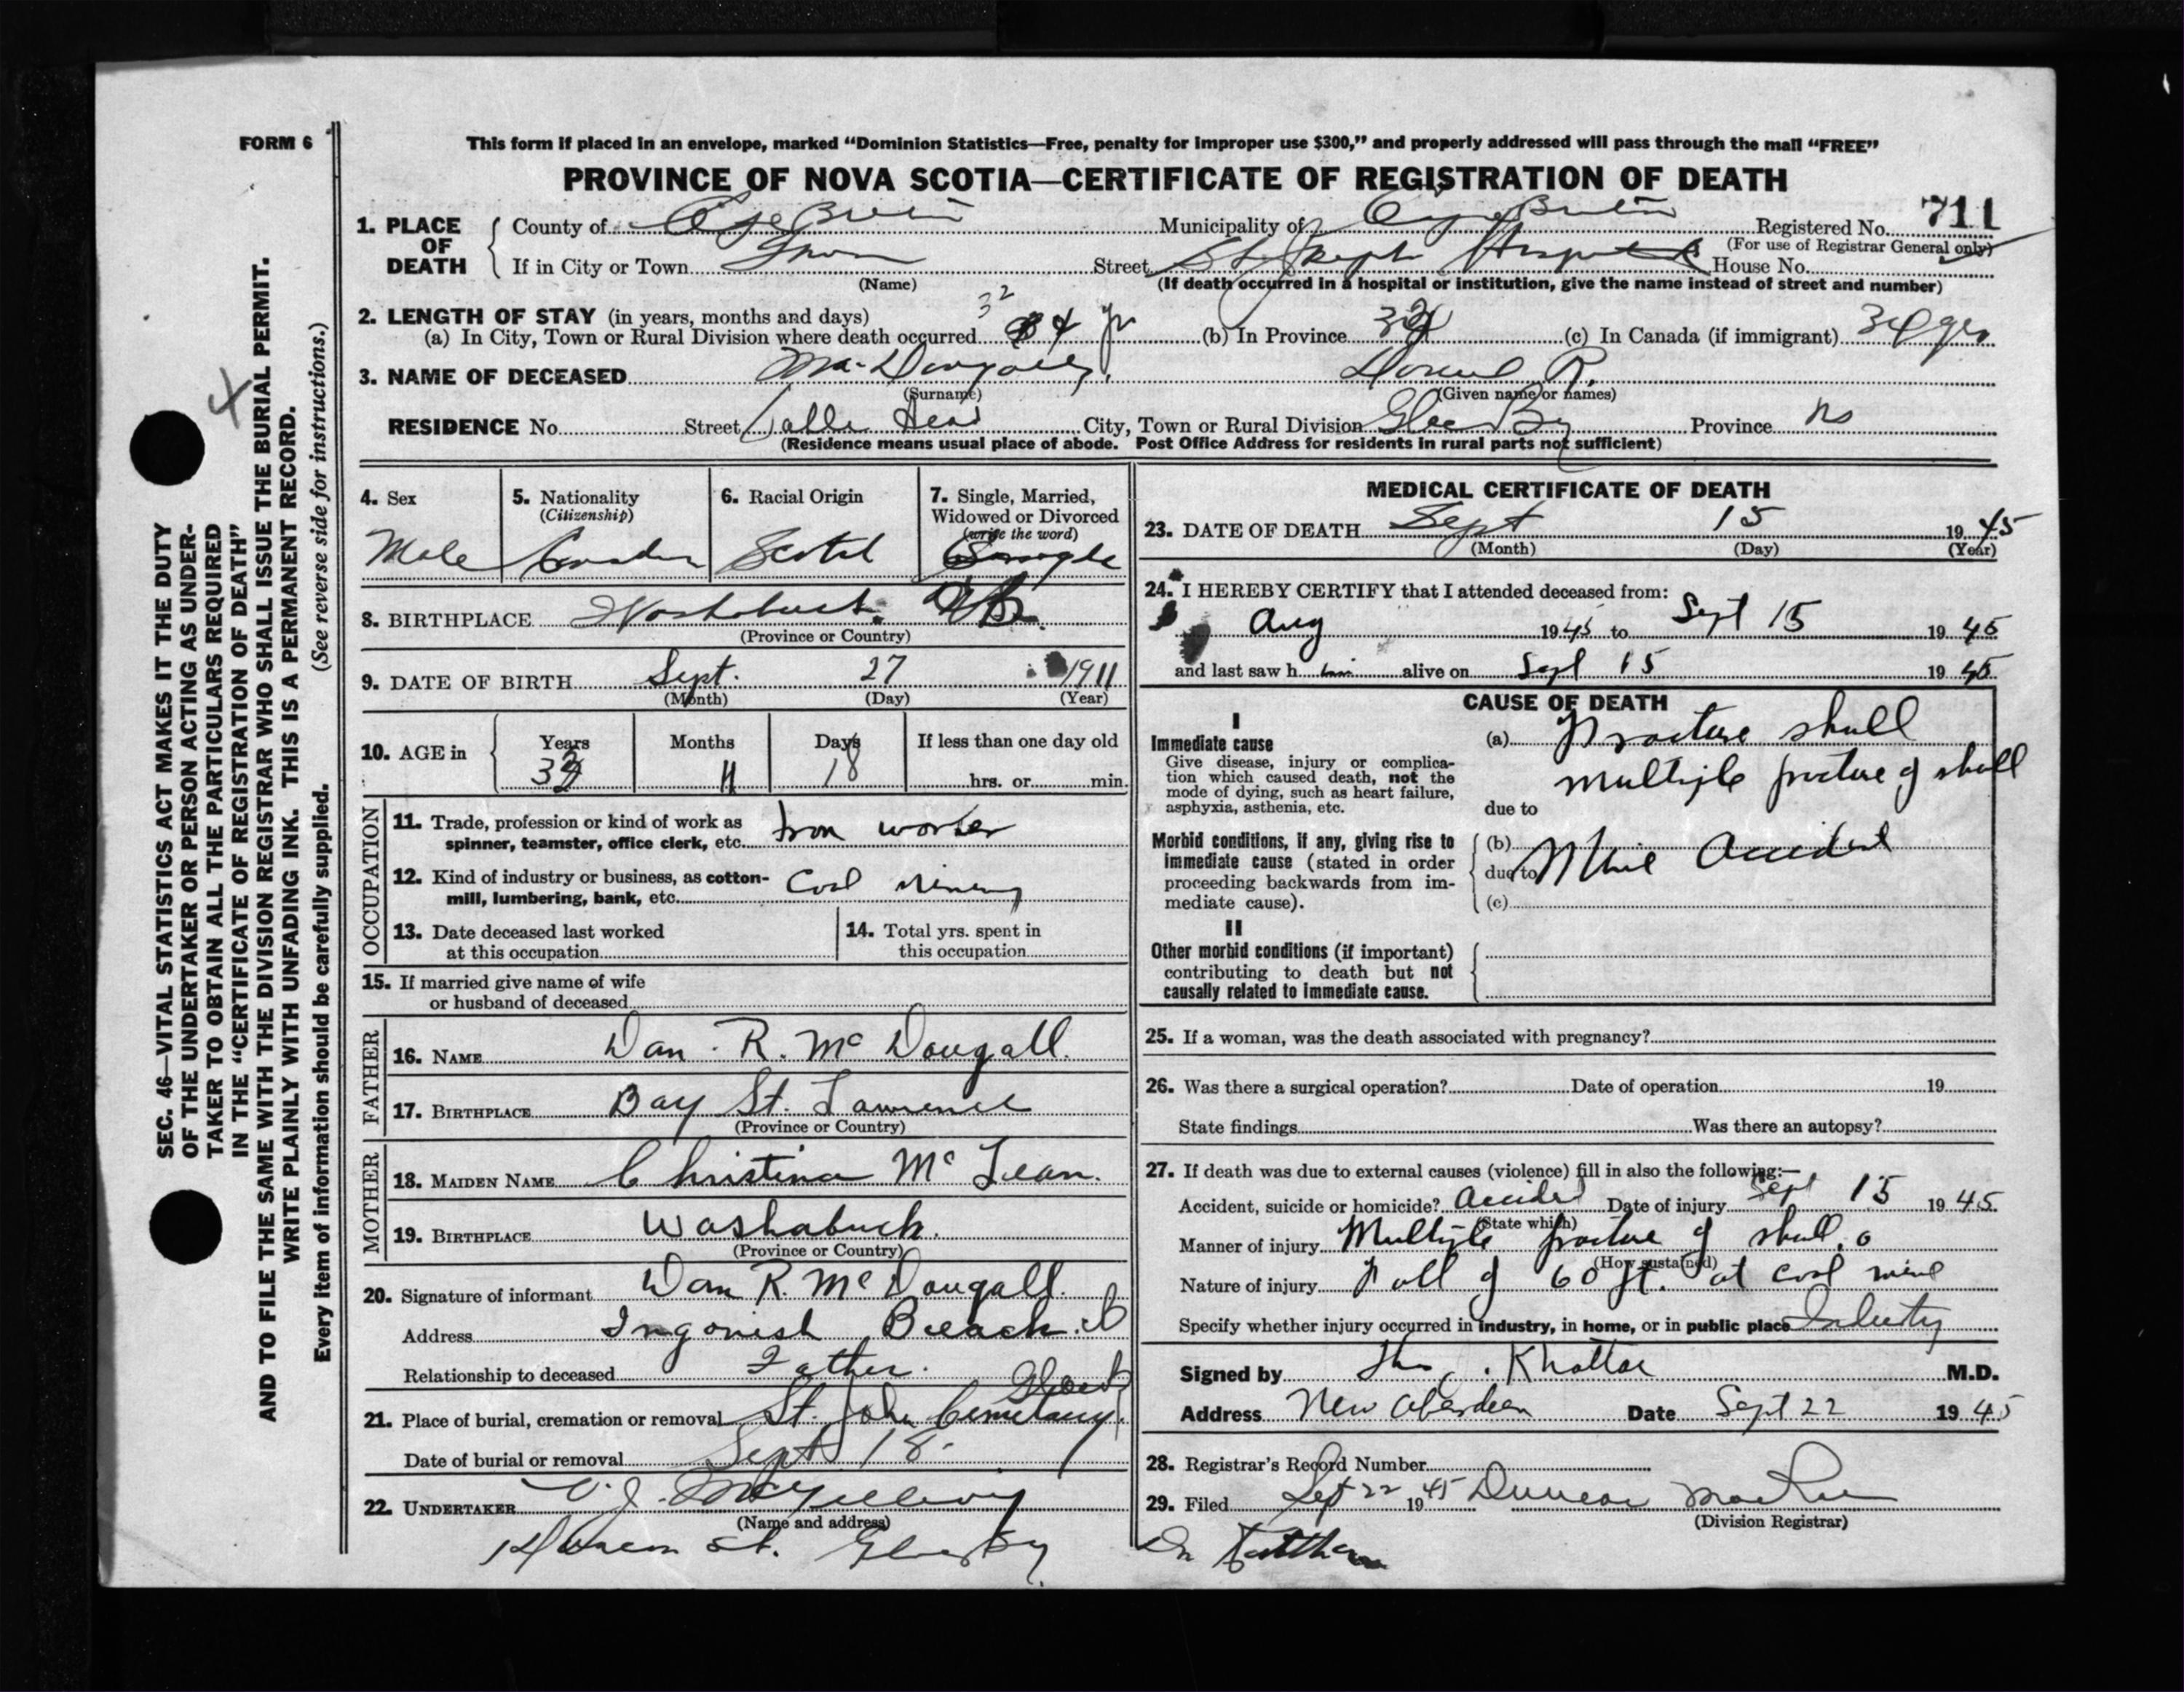 FORM 6
This form if placed in an envelope, marked “Dominion Statistics—Free, penalty for improper use $300,” and properly addressed will pass through the mail “FREE”
PROVINCE OF NOVA SCOTIA—CERTIFICATE OF REGISTRATION OF DEATH
1. PLACE OF DEATH County of Cape Breton Municipality of Cape Breton Registered No. 711
(For use of Registrar General only)
If in City or Town Street St. Joseph Hospital House No.
(Name) (If death occurred in a hospital or institution, give the name instead of street and number)
2. LENGTH OF STAY (in years, months and days)
(a) In City, Town or Rural Division where death occurred yr (b) In Province (c) In Canada (if immigrant) 34 yrs
3. NAME OF DECEASED MacDougall, R.
(Surname) (Given name or names)
RESIDENCE No. Street Table Head City, Town or Rural Division Glace Bay Province NS
(Residence means usual place of abode. Post Office Address for residents in rural parts not sufficient)
4. Sex 5. Nationality 6. Racial Origin 7. Single, Married,
(Citizenship) Widowed or Divorced
(write the word)
Male Canadian Scotch Single
8. BIRTHPLACE Washabuck.
(Province or Country)
9. DATE OF BIRTH Sept. 27 1911
(Month) (Day) (Year)
10. AGE in Years Months Days If less than one day old
33 11 18 hrs. or min.
OCCUPATION
11. Trade, profession or kind of work as Iron worker
spinner, teamster, office clerk, etc.
12. Kind of industry or business, as cotton- Coal mining
mill, lumbering, bank, etc.
13. Date deceased last worked 14. Total yrs. spent in
at this occupation this occupation
15. If married give name of wife
or husband of deceased
FATHER
16. NAME Dan. R. Mc Dougall.
17. BIRTHPLACE Bay St. Lawrence
(Province or Country)
MOTHER
18. MAIDEN NAME Christina Mc Lean.
19. BIRTHPLACE Washabuck.
(Province or Country)
20. Signature of informant Dan R. Mc Dougall.
Address Ingonish Beach. CB
Relationship to deceased Father.
21. Place of burial, cremation or removal St. John Cemetary
Date of burial or removal Sept 18
22. UNDERTAKER V. J. McGillivary
(Name and address)
St. Glace Bay
MEDICAL CERTIFICATE OF DEATH
23. DATE OF DEATH Sept 15 1945
(Month) (Day) (Year)
24. I HEREBY CERTIFY that I attended deceased from:
Aug 1945 to Sept 15 1945
and last saw h im alive on Sept 15 1945
CAUSE OF DEATH
I
Immediate cause (a) Fracture skull
Give disease, injury or complica-
tion which caused death, not the
mode of dying, such as heart failure,
asphyxia, asthenia, etc.
multiple fracture of skull
due to
Morbid conditions, if any, giving rise to
immediate cause (stated in order
proceeding backwards from im-
mediate cause).
(b) Mine Accident
due to
(c)
II
Other morbid conditions (if important)
contributing to death but not
causally related to immediate cause.
25. If a woman, was the death associated with pregnancy?
26. Was there a surgical operation? Date of operation 19
State findings Was there an autopsy?
27. If death was due to external causes (violence) fill in also the following:—
Accident, suicide or homicide? Accident Date of injury Sept 15 1945
(State which)
Manner of injury Multiple fracture of skull.
(How sustained)
Nature of injury Fall of 60 ft. at coal mine
Specify whether injury occurred in industry, in home, or in public place Industry
Signed by Khattar M.D.
Address New Aberdeen Date Sept 22 1945
28. Registrar's Record Number
29. Filed Sept 22 1945 Duncan
(Division Registrar)
SEC. 46—VITAL STATISTICS ACT MAKES IT THE DUTY
OF THE UNDERTAKER OR PERSON ACTING AS UNDER-
TAKER TO OBTAIN ALL THE PARTICULARS REQUIRED
IN THE “CERTIFICATE OF REGISTRATION OF DEATH”
AND TO FILE THE SAME WITH THE DIVISION REGISTRAR WHO SHALL ISSUE THE BURIAL PERMIT.
WRITE PLAINLY WITH UNFADING INK. THIS IS A PERMANENT RECORD.
Every item of information should be carefully supplied. (See reverse side for instructions.)